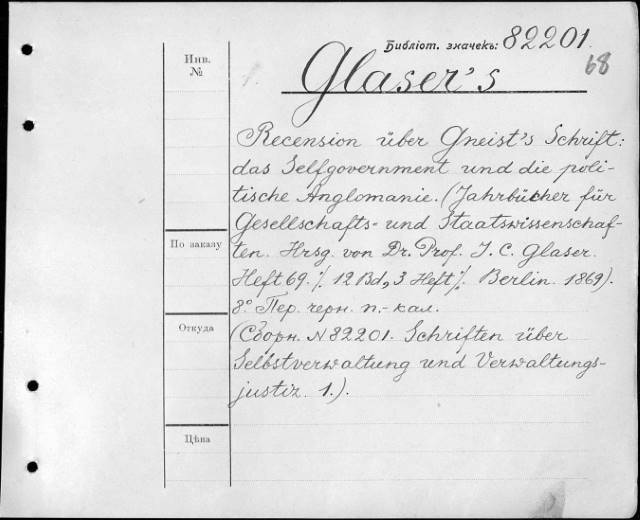 Библіот. значекъ: 82201.
68
Инв.
№
Glaser's
Recension über Gneist's Schrift:
das Selfgovernment und die poli-
tische Anglomanie. (Jahrbücher für
Gesellschafts- und Staatswissenschaf-
По заказу
ten. Hrsg. von Dr. Prof. J. C. Glaser.
Heft 69. /. 12 Bd, 3 Heft /. Berlin. 1869).
8° Пер. черн. п.- кал.
Откуда
(Сборн. N 82201. Schriften über
Selbstverwaltung und Verwaltungs-
justiz. 1.).
Цѣна